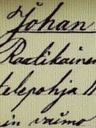 Johan
Raatikainen
telepohja N
in vaimo